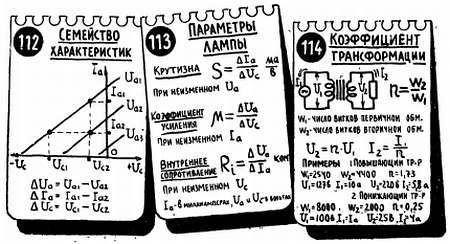 112
СЕМЕЙСТВО
ХАРАКТЕРИСТИК
Ia
Ua1
Ia1
Ua2
Ia2
Ua3
-Uc
Uc1
Uc2
O
ΔUa = Ua1 - Ua2
ΔIa = Ia1 - Ia2
ΔUc = Uc1 - Uc2
113
ПАРАМЕТРЫ
ЛАМПЫ
КРУТИЗНА S = ΔIa/ΔUc ма/в
ПРИ НЕИЗМЕННОМ Ua
КОЭФФИЦИЕНТ
УСИЛЕНИЯ M = ΔUa/ΔUc
ПРИ НЕИЗМЕННОМ Ia
ВНУТРЕННЕЕ
СОПРОТИВЛЕНИЕ Ri = ΔUa/ΔIa ком
ПРИ НЕИЗМЕННОМ Uc
Ia - В МИЛЛИАМПЕРАХ, Ua И Uc В ВОЛЬТАХ
114
КОЭФФИЦИЕНТ
ТРАНСФОРМАЦИИ
I1 U1 U2 I2
n = W2/W1
W1 - ЧИСЛО ВИТКОВ ПЕРВИЧНОЙ ОБМ.
W2 - ЧИСЛО ВИТКОВ ВТОРИЧНОЙ ОБМ.
U2 = n·U1 I2 = I1/n
ПРИМЕРЫ 1 ПОВЫШАЮЩИЙ ТР-Р
W1=2540 W2=4400 n=1,73
U1=127в I1=10а U2=220в I2=5,8а
2 ПОНИЖАЮЩИЙ ТР-Р
W1=8000, W2=2000 n=0,25
U1=100в I1=1а U2=25в I2=4а